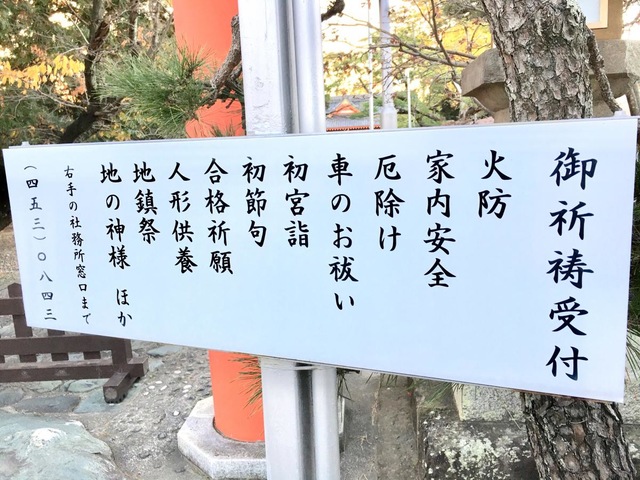 御祈祷受付
火防
家内安全
厄除け
車のお祓い
初宮詣
初節句
合格祈願
人形供養
地鎮祭
地の神様 ほか
右手の社務所窓口まで
(四五三)〇八四三